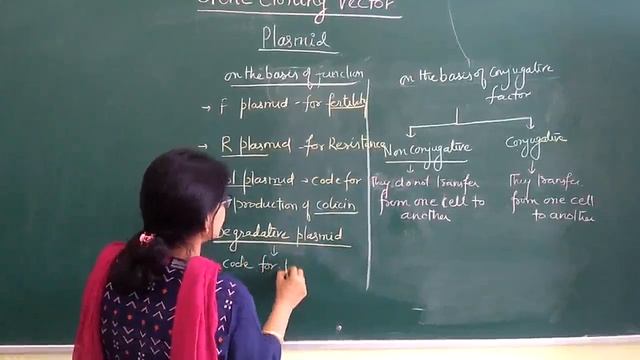 Gene Cloning Vector
Plasmid
on the basis of function
→ F plasmid - for fertility
→ R plasmid - for Resistance
plasmid → code for
production of colicin
Degradative plasmid
↓
code for
on the basis of conjugative
factor
Non conjugative
↓
They do not transfer
from one cell to
another
Conjugative
↓
They transfer
from one cell
to another